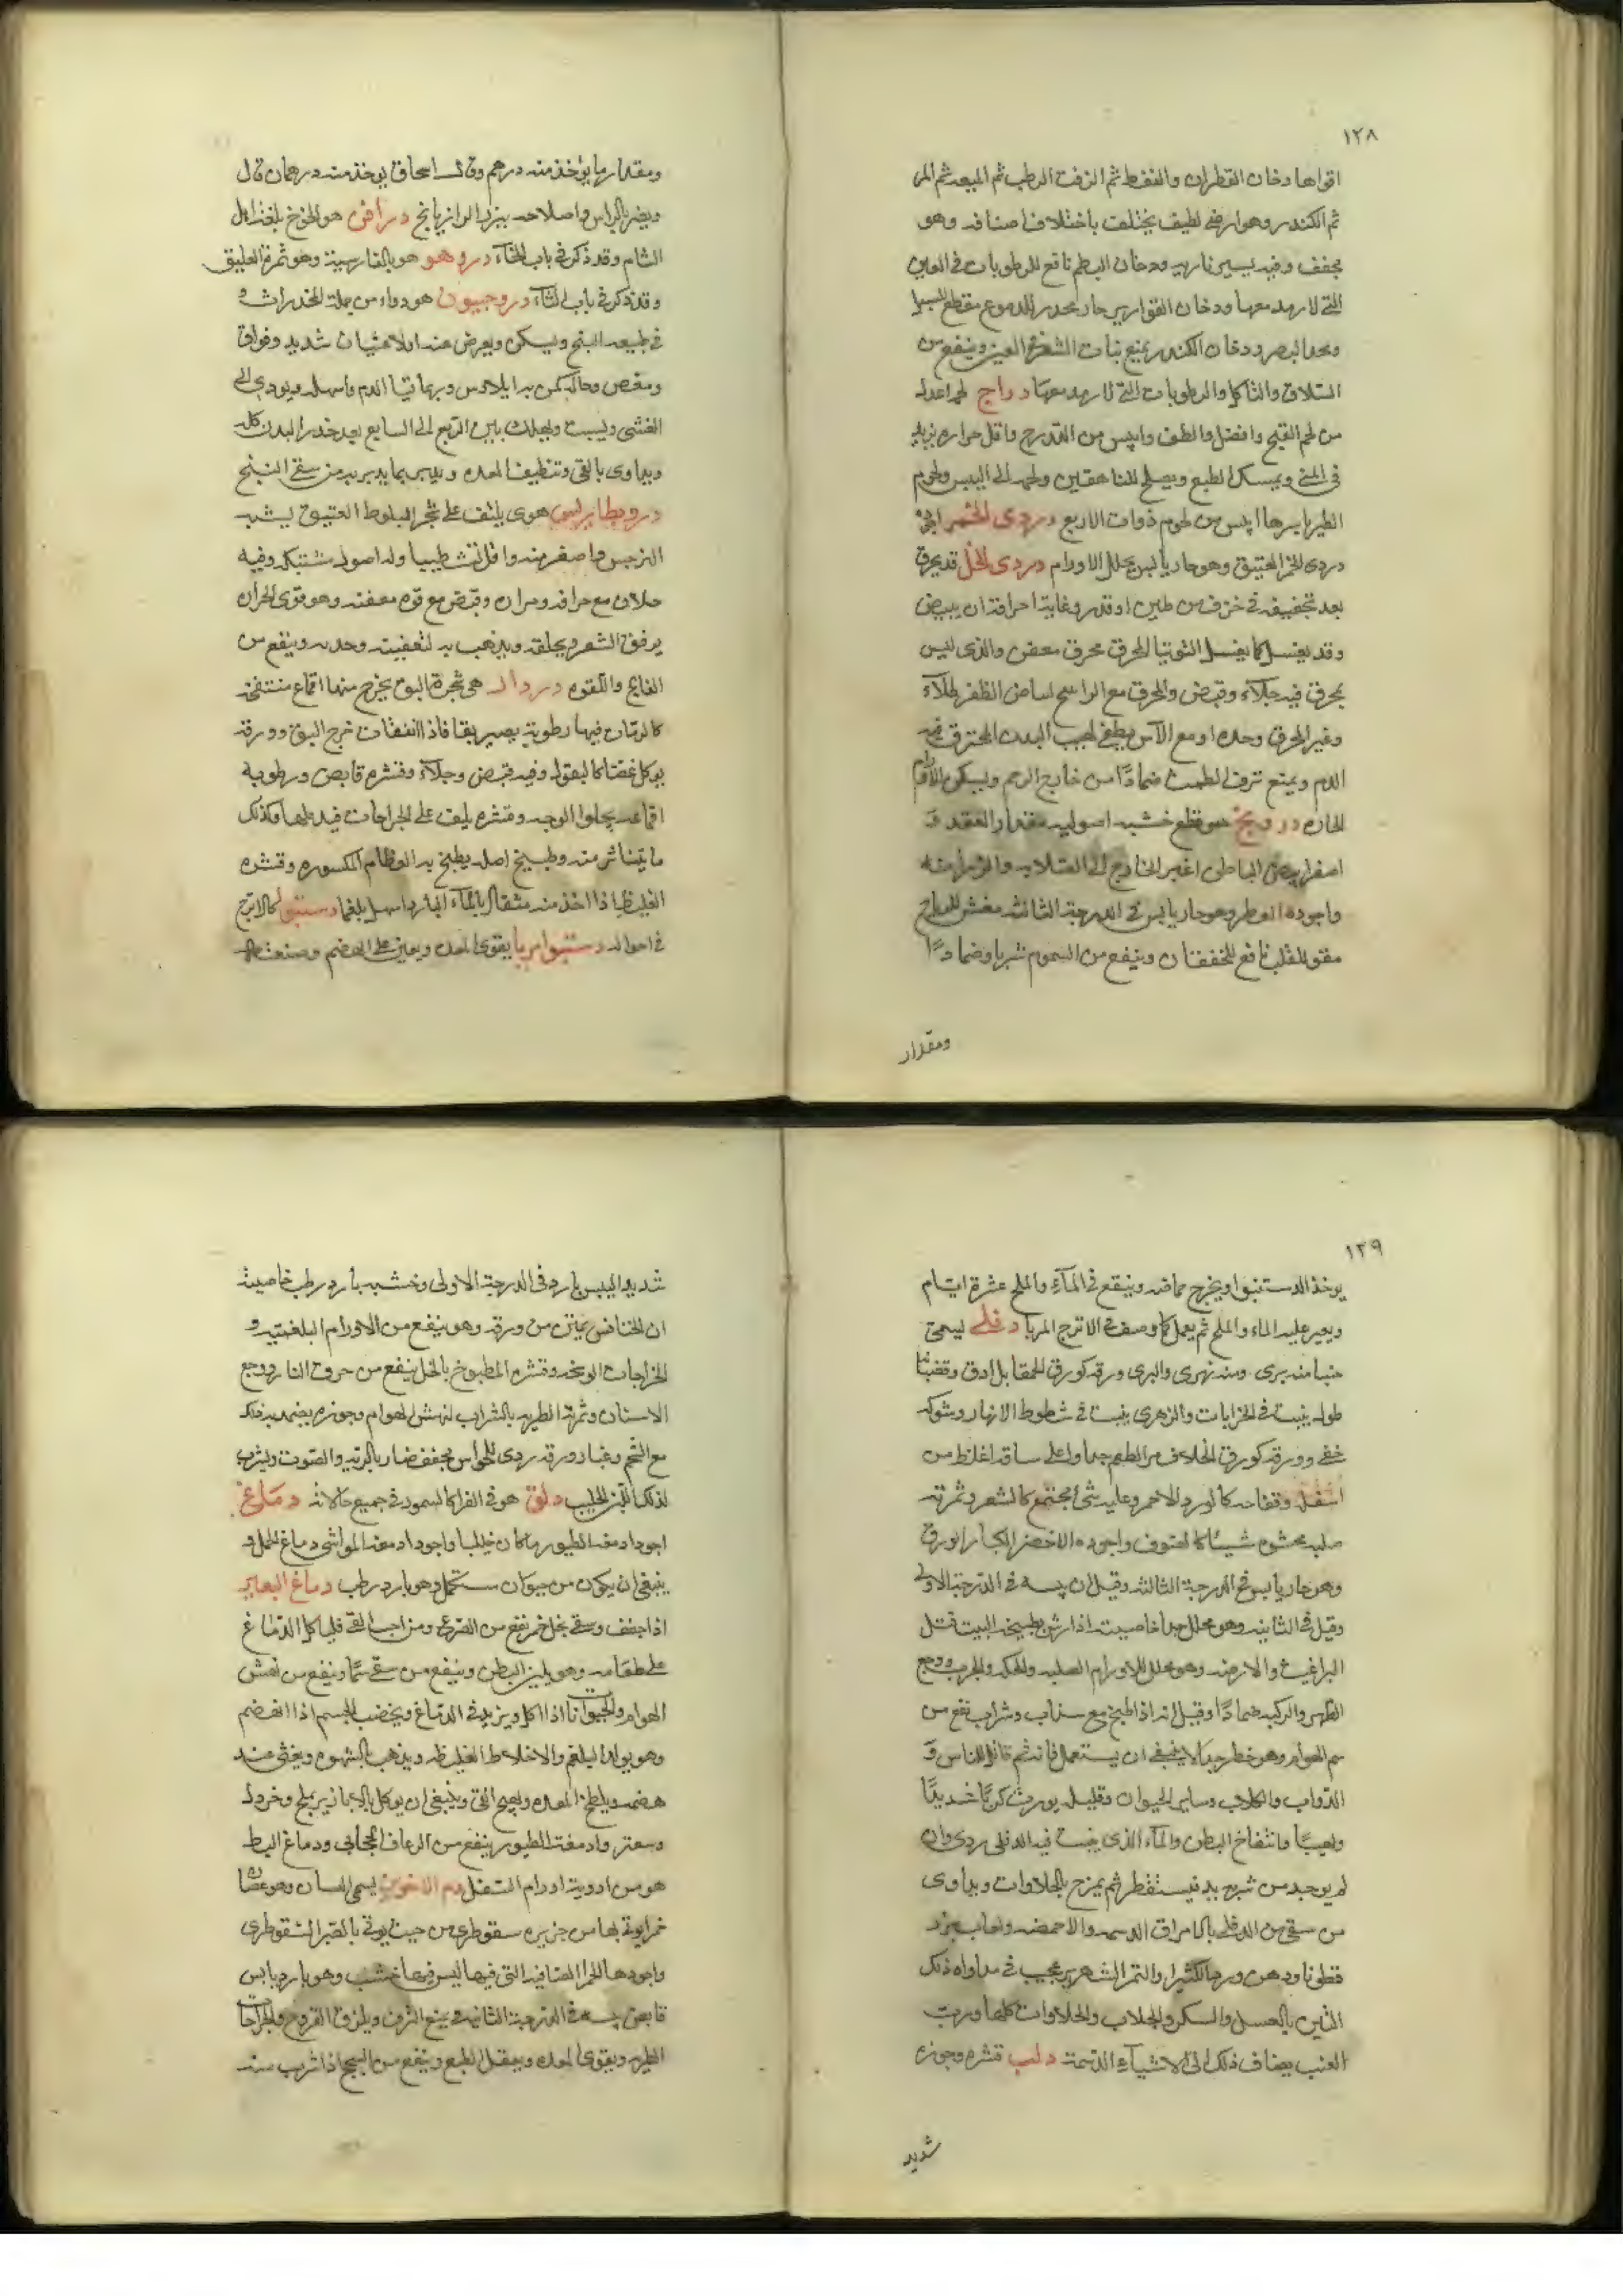 ١٢٨
اقواها دخان القطران والنفط ثم الزفت الرطب ثم الميعه ثم المر
ثم الكندر وهو ارضي لطيف يختلف باختلاف اصنافه وهو
مجفف وفيه يسير ناريه ودخان البطم نافع للرطوبات في العين
التي لا رمد معها ودخان القوارير حار محدر للدموع مقطع
ومحد البصر ودخان الكندر يمنع نبات الشعر في العين وينفع من
السلاق والتاكل والرطوبات التي لا رمد معها دراج لحمه اعدل
من لحم القبج وافضل والطف وايبس من التدرج واقل حراره يزيد
في المني ويمسك الطبع ويصلح للناقهين ولحمه الى اليبس ولحوم
الطير باسرها ايبس من لحوم ذوات الاربع دردى الخمر
دردى الخمر العتيق وهو حار يابس يحلل الاورام دردى الخل قد يحرق
بعد تجفيفه في خزف من طين او قدر وغاية احراقه ان يبيض
وقد يغسل كما يغسل التوتيا المحرق محرق معفن والذى ليس
بمحرق فيه جلاء وقبض والمحرق مع الراتينج لبياض الظفر طلاء
وغير المحرق وحده او مع الآس يطفى لهيب البدن المحترق فيه
الدم ويمنع نزف الطمث ضمادًا من خارج الرحم ويسكن الاورام
الحاره درونج هو قطع خشبيه اصوليه مقدار العقد و
اصغر ابيض الباطن اغبر الخارج الى الصلابه والرزانه
واجوده العطر وهو حار يابس في الدرجة الثالثه مفش للرياح
مقو للقلب نافع للخفقان وينفع من السموم شربا وضمادًا
ومقدار
ومقدار ما يؤخذ منه درهم وقال اسحاق يوخذ منه درهمان قال
ويضر بالراس واصلاحه ببزر الرازيانج دراقن هو الخوخ بلغة اهل
الشام وقد ذكر في باب الخاء دروهو هو بالفارسية وهو ثمرة العليق
وقد ذكر في باب الثاء دروجبيون هو دواء من جملة المخدرات و
في طبيعه البنج ويسكن ويعرض عنه اولا غثيان شديد وفواق
ومغص وحاله كمن به ايلاوس وربما تقيا الدم واسهله ويودى الى
الغشى ويسبت ويهلك بابين الربع الى السابع بعد خدر البدن كله
ويداوى بالقى وتنظيف المعده ويدبر بما يدبر به من سقى البنج
دروبطارس هو شى يلتف على شجر البلوط العتيق يشبه
النرجس واصغر منه واقل تشطيبا وله اصول مشتبكه وفيه
حلاوه مع حرافه ومراره وقبض مع قوه معفنه وهو قوى الحراره
يرقق الشعر ويحلقه ويذهب به لتعفينه وحدته وينفع من
الفالج واللقوه دردار هى شجرة البق يخرج منها اقماع منتفخه
كالرمان فيها رطوبة يصير بقا فاذا انفقات خرج البق وورقه
يوكل غضا كالبقول وفيه قبض وجلاء وقشره قابض ورطوبه
اقماعه يجلوا الوجه وقشره يلف على الجراحات فيدملها وكذلك
ما يتناثر منه وطبيخ اصله يطبخ به العظام المكسوره وقشره
الغليظ اذا اخذ منه مثقال بالماء البارد اسهل بلغما دستنبو كالاترج
في احواله دستنبو امربا يقوى المعده ويعين على الهضم وصنعته
١٢٩
يوخذ الدستنبو ويخرج حماضه وينقع في الماء والملح عشرة ايام
ويغير عليه الماء والملح ثم يعمل كما وصف في الاترج المربا دفلي يسمى
حبنا منه برى ومنه نهرى والبرى ورقه كورق الحمقا بل ادق وقضبانه
طوله ينبت في الخرابات والنهرى ينبت في شطوط الانهار وشوكه
خفى وورقه كورق الخلاف مر الطعم جدا واعلى ساقه اغلظ من
اسفله وفقاحه كالورد الاحمر وعليه شى مجتمع كالشعر وثمرته
صلبه محشوه شيئا كالصوف واجوده الاخضر الكبار الورق
وهو حار يابس في الدرجة الثالثه وقيل ان يبسه في الدرجة الاولى
وقيل في الثانيه وهو محلل جدا خاصيته اذا رش بطبيخه البيت قتل
البراغيث والارضه وهو محلل للاورام الصلبه والحكه والجرب ووجع
الظهر والركبه ضمادًا وقيل انه اذا طبخ مع سذاب وشراب نفع من
سم الهوام وهو خطر جدا لا ينبغى ان يستعمل فانه سم قاتل للناس و
الدواب والكلاب وساير الحيوان وقليله يورث كربًا شديدًا
ولهيبًا وانتفاخ البطن والماء الذى ينبت فيه الدفلى ردى وان
لم يوجد من شربه بد فيستقطر ثم يمزج بالحلاوات ويداوى
من سقى من الدفلى بالامراق الدسمه والاحمضه ولعاب بزر
قطونا ودهن ورد والكثيرا والتمر الشهريز عجيب في مداواه ذلك
التين بالعسل والسكر والجلاب والحلاوات كلها ورب
العنب يضاف ذلك الى الاشياء الدسمة دلب قشره وجوزه
شديد
شديد اليبس بارد في الدرجة الاولى وخشبه بارد رطب خاصيته
ان الخنافس يموتن من ورقه وهو ينفع من الاورام البلغميه و
الجراحات الوسخه وقشره المطبوخ بالخل ينفع من حرق النار ووجع
الاسنان وثمرته الطريه بالشراب لنهش الهوام وجوزه يضمد به ذلك
مع الشحم وغبار ورقه ردى للحواس مجفف ضار بالريه والصوت ويشرب
لذلك اللبن الحليب دلق هو في الفرا كالسمور في جميع حالاته دماغ
اجود ادمغه الطيور ما كان جبليا واجود ادمغه المواشى دماغ الحمل و
ينبغى ان يكون من حيوان مستكمل وهو بارد رطب دماغ البعير
اذا جفف وسقى بخل خمر نفع من الصرع ومن احب القى فلياكل الدماغ
على طعامه وهو يلين البطن وينفع من سقى سمًا وينفع من نهش
الهوام والحيوانات اذا اكل ويزيد في الدماغ ويخصب الجسم اذا انهضم
وهو يولد البلغم والاخلاط الغليظه ويذهب بالشهوه ويغثى عند
هضمه ويلطخ المعده ويهيج القى وينبغى ان يوكل بالابازير بملح وخردل
وسعتر وادمغة الطيور ينفع من الرعاف الحجابى ودماغ البط
هو من ادوية اورام السفل دم الاخوين يسمى ايسان وهو عصاره
حمرا يوتى بها من جزيره سقوطرى من حيث يوتى بالصبر السقوطرى
واجودها الحمرا الصافيه التى فيها ليس فيها خشب وهو بارد يابس
قابض يبسه في الدرجة الثانيه يمنع النزف ويلزق القروح والجراحات
الطريه ويقوى المعده ويعقل الطبع وينفع من السحج اذا شرب منه